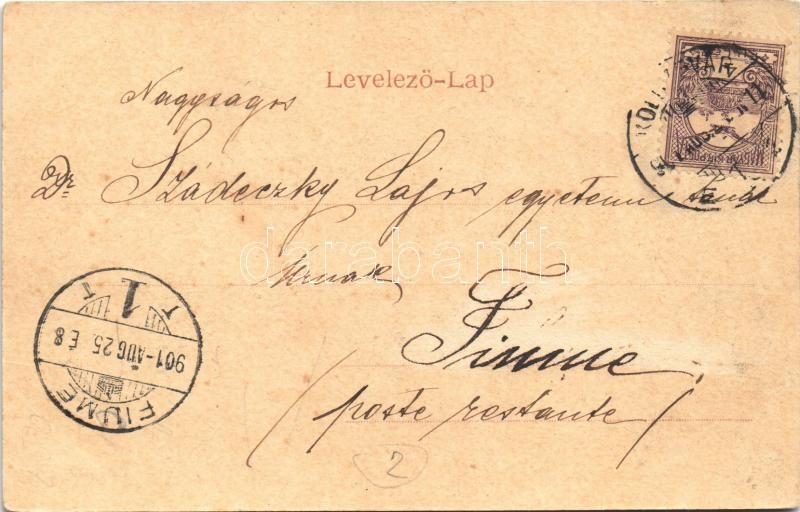 Levelező-Lap
KOLOZSVÁR
Nagyságos
Dr. Szádeczky Lajos egyetemi tanár
Urnak
Fiume
(poste restante)
FIUME
901-AUG 25. É8
1
T T
2
darabanth